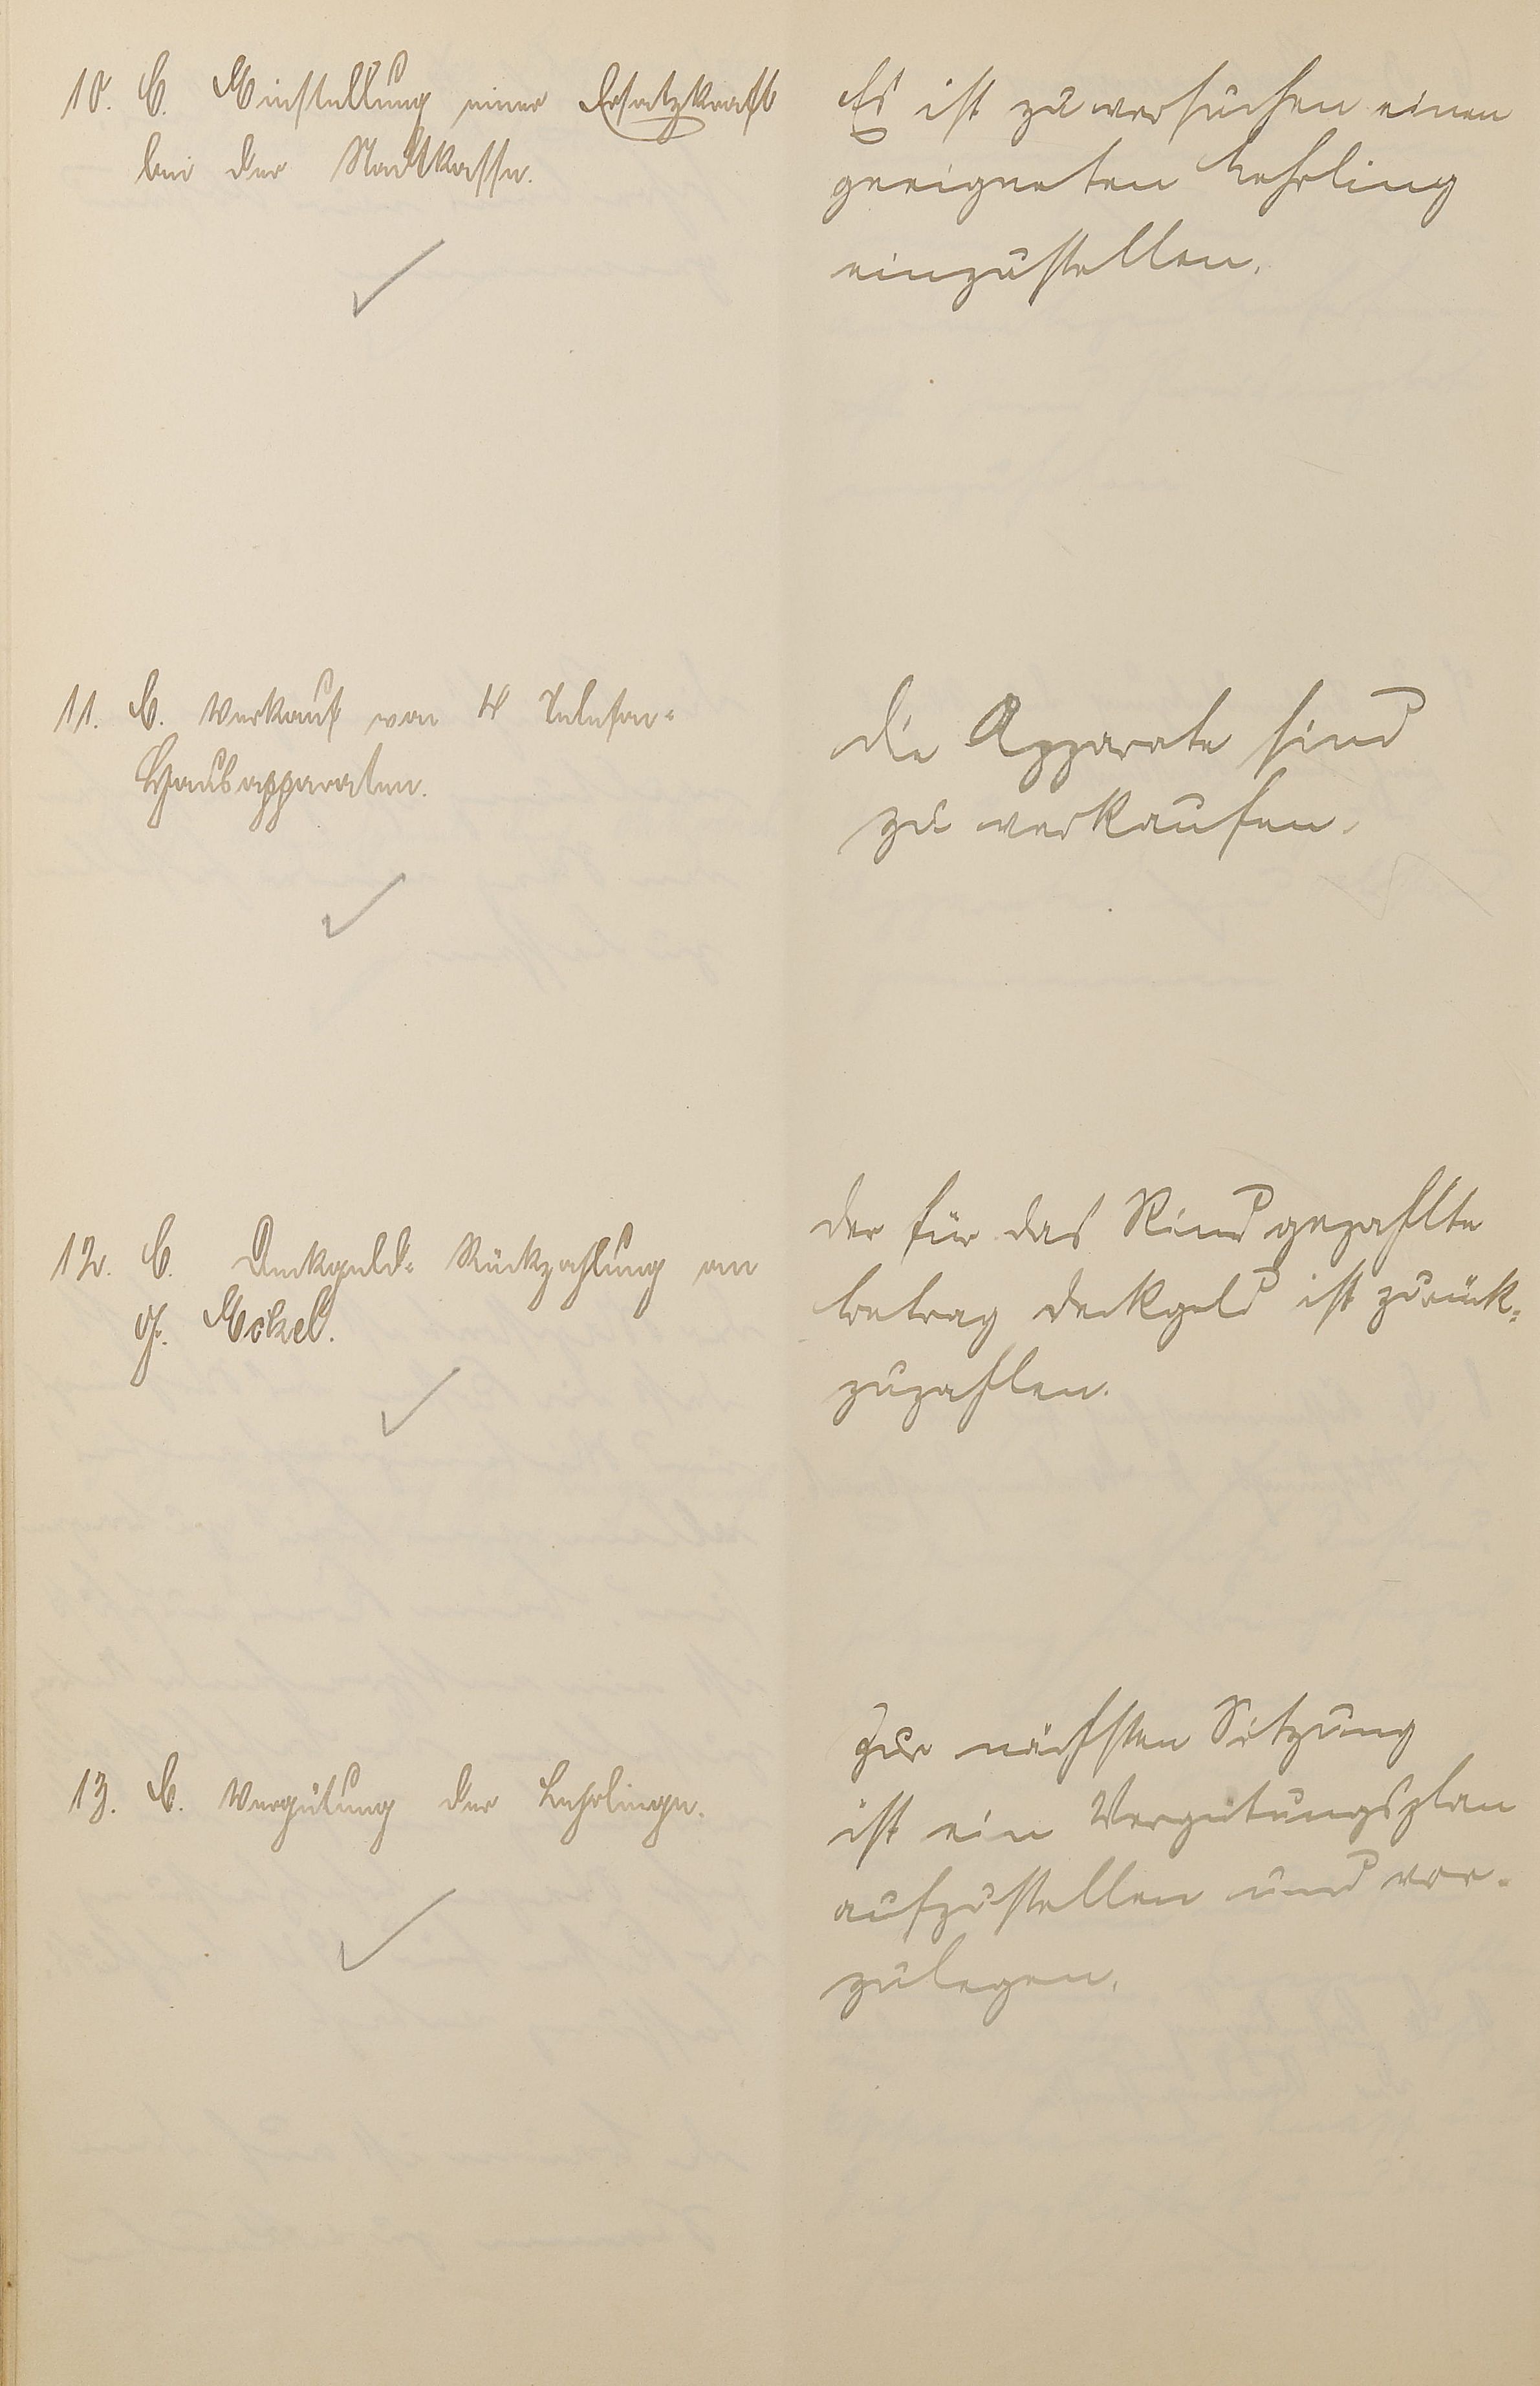 10. C. Einstellung einer Ersatzkraft
bei der Stadtkasse.
Es ist zu versuchen einen
geeigneten Lehrling
einzustellen.
11. C. Verkauf von 4 Telefon-
Hausapparaten.
Die Apparate sind
zu verkaufen.
12. C. Deckgeld-Rückzahlung an
J. Eckel.
Der für das Rind gezahlte
Betrag Deckgeld ist zurück-
zuzahlen.
13. C. Vergütung der Lehrlinge.
Zur nächsten Sitzung
ist ein Vergütungsplan
aufzustellen und vor-
zulegen.